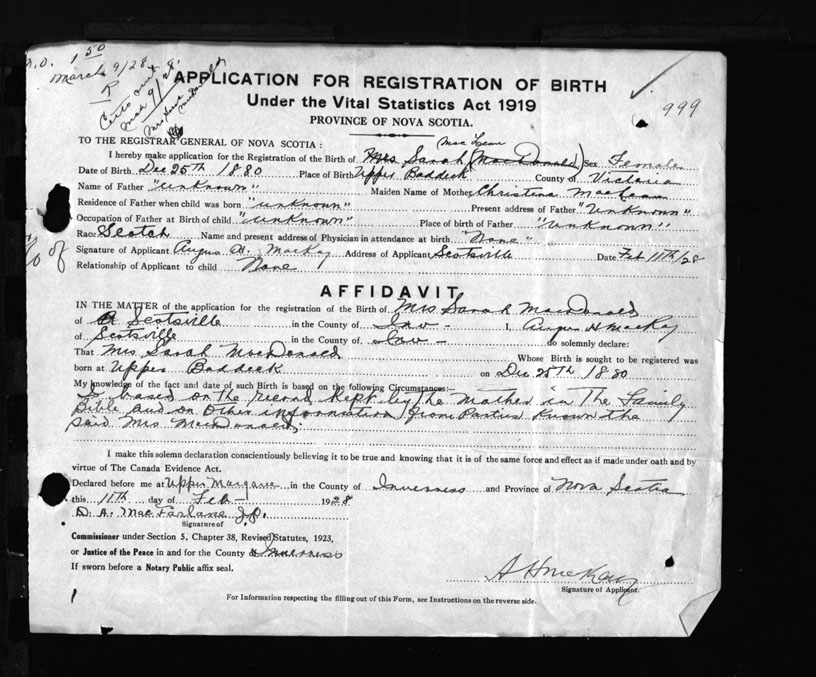 1 50
March 9/28
APPLICATION FOR REGISTRATION OF BIRTH
Under the Vital Statistics Act 1919
PROVINCE OF NOVA SCOTIA.
999
TO THE REGISTRAR GENERAL OF NOVA SCOTIA :
I hereby make application for the Registration of the Birth of Mrs Sarah (MacDonald) Sex Female
Date of Birth Dec 25th 1880 Place of Birth Upper Baddeck County of Victoria
Name of Father "Unknown" Maiden Name of Mother Christina MacLean
Residence of Father when child was born "Unknown" Present address of Father "Unknown"
Occupation of Father at Birth of child "Unknown" Place of birth of Father "Unknown"
Race Scotch Name and present address of Physician in attendance at birth "None"
Signature of Applicant Angus H. MacKay Address of Applicant Scotsville Date Feb 11th/28
Relationship of Applicant to child None
AFFIDAVIT
IN THE MATTER of the application for the registration of the Birth of Mrs Sarah MacDonald
of Scotsville in the County of Inv - I, Angus H MacKay
of Scotsville in the County of Inv - do solemnly declare:
That Mrs Sarah MacDonald Whose Birth is sought to be registered was
born at Upper Baddeck on Dec 25th 1880
My knowledge of the fact and date of such Birth is based on the following Circumstances:—
Is based on the record kept by the Mother in The Family
Bible and on other information from Parties Known the
said Mrs MacDonald.
I make this solemn declaration conscientiously believing it to be true and knowing that it is of the same force and effect as if made under oath and by
virtue of The Canada Evidence Act.
Declared before me at Upper Margaree in the County of Inverness and Province of Nova Scotia
this 11th day of Feb 1928
D. A. MacFarlane J.P.
Signature of
Commissioner under Section 5, Chapter 38, Revised Statutes, 1923,
or Justice of the Peace in and for the County of Inverness
If sworn before a Notary Public affix seal.
A H McKay
Signature of Applicant.
For Information respecting the filling out of this Form, see Instructions on the reverse side.